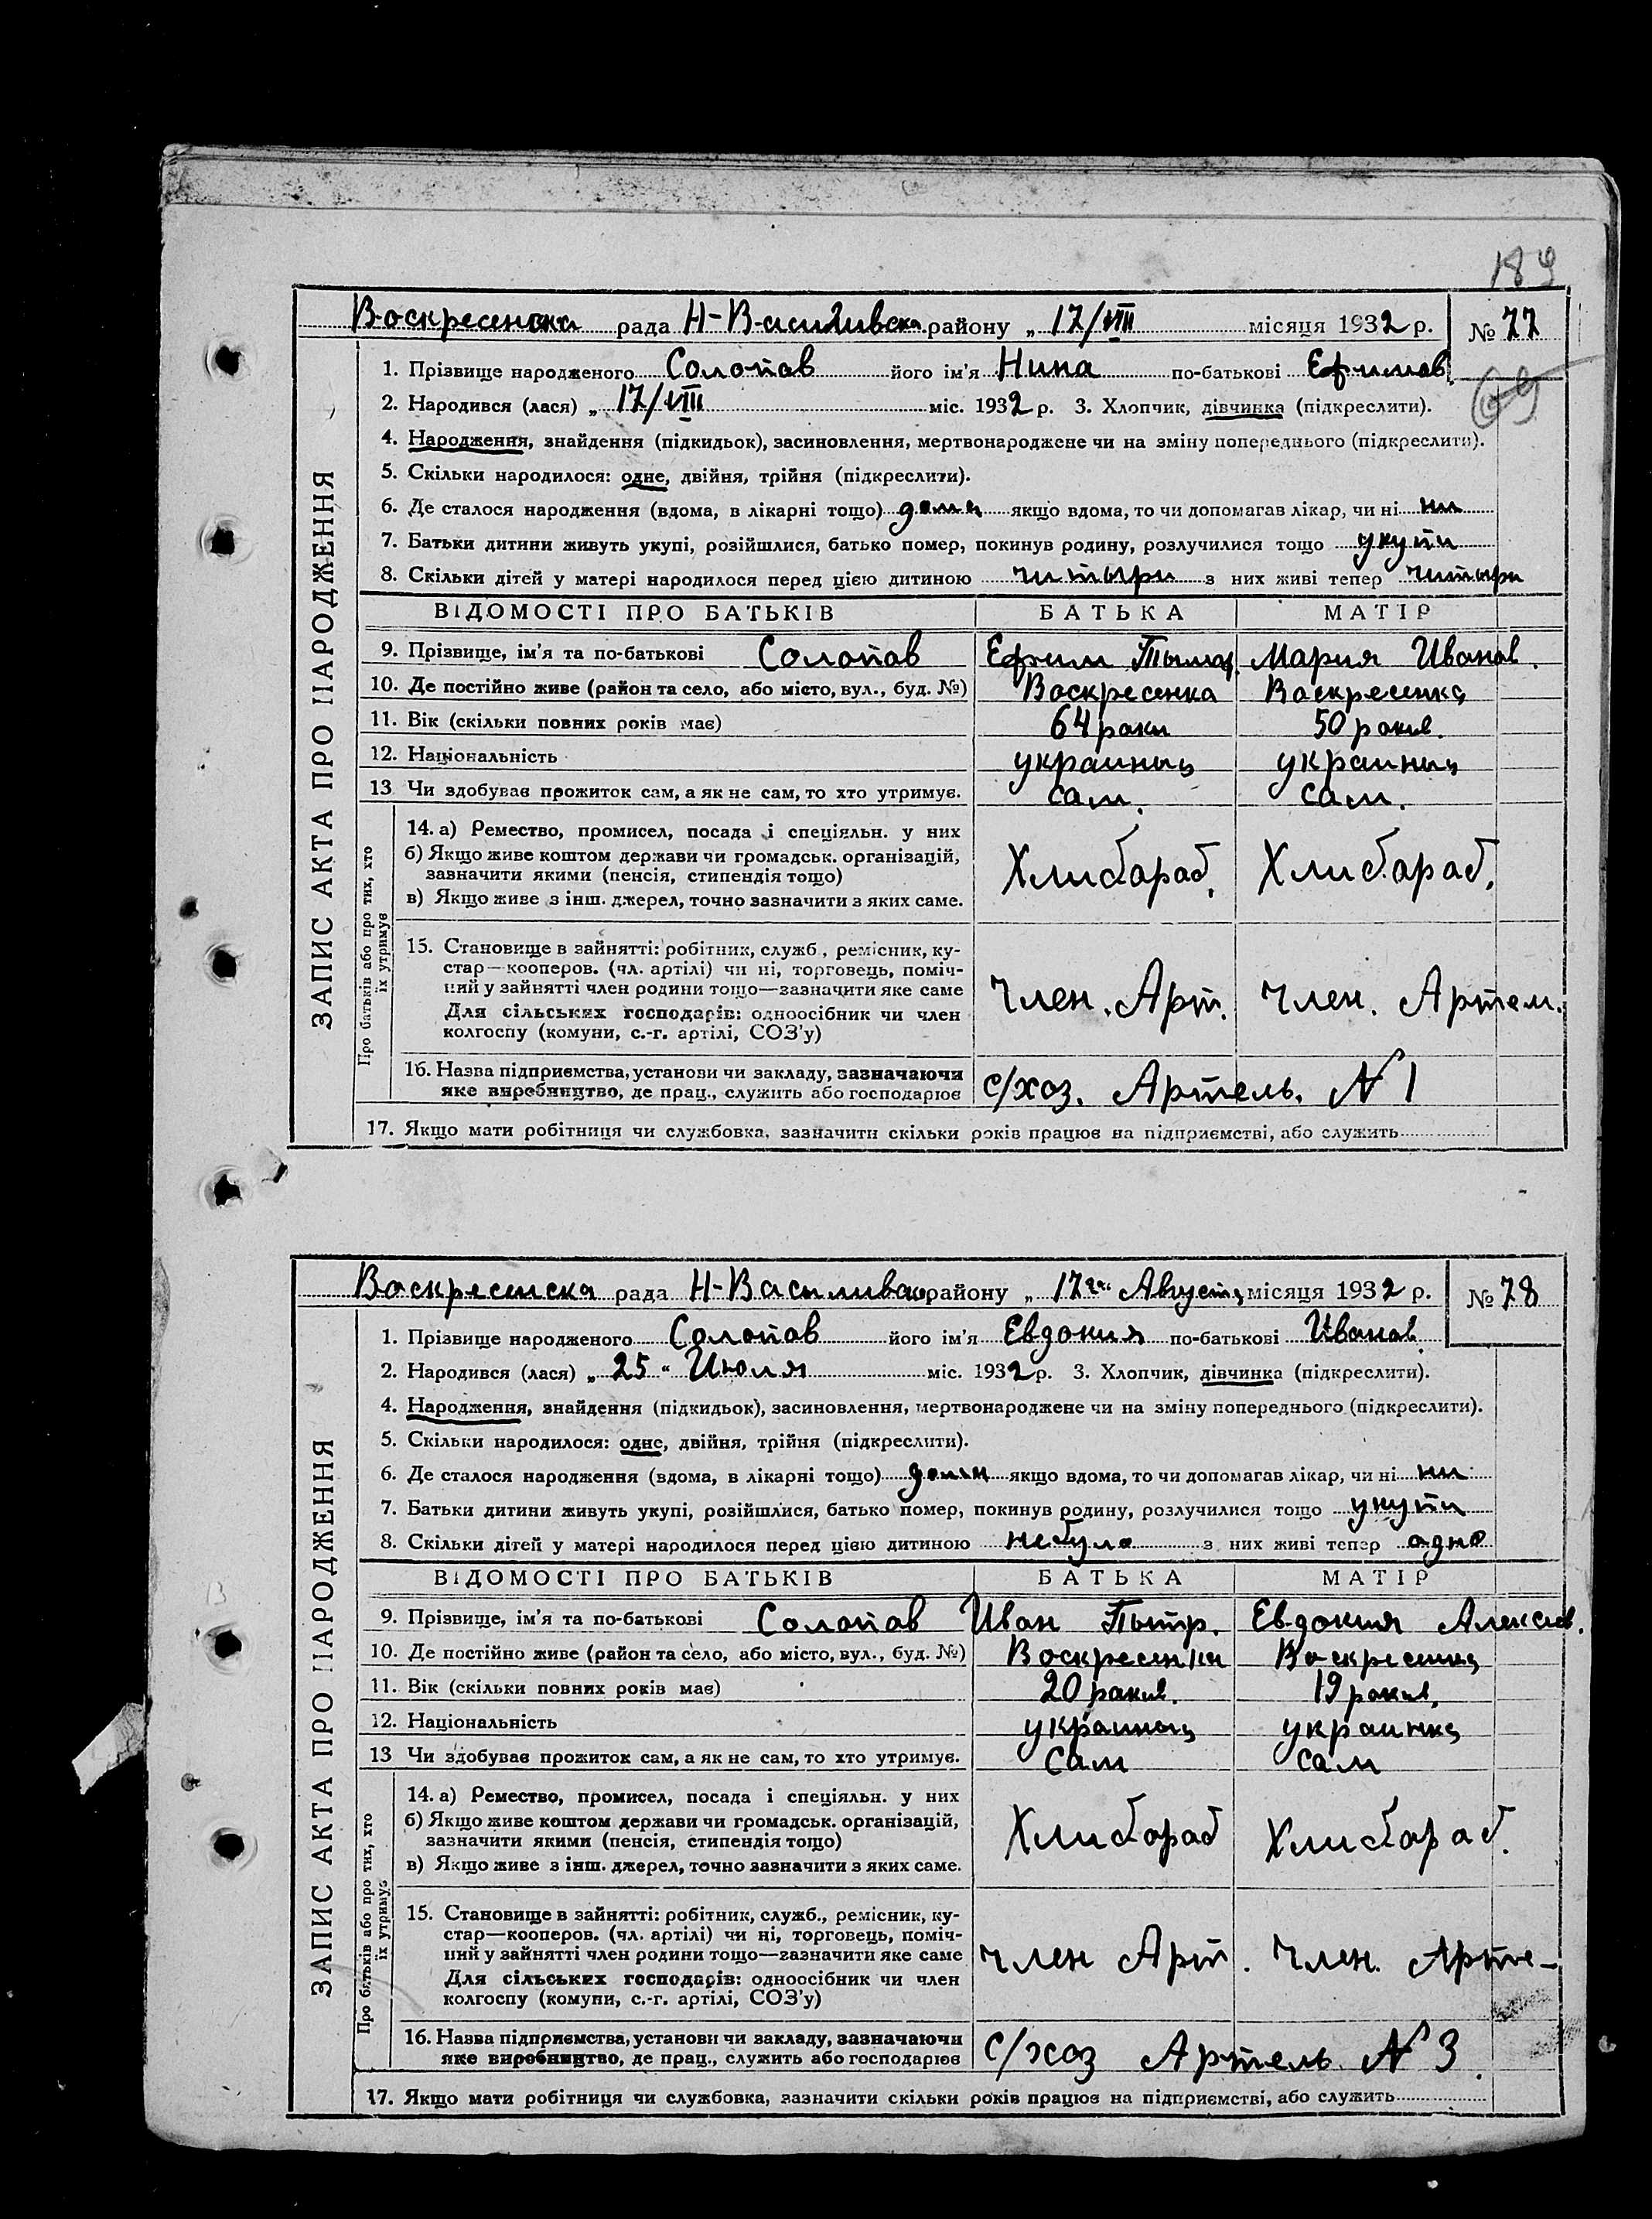 189
Воскресенска рада Н-Василивска району „ 17/VIII місяця 1932 р. № 77
1. Прізвище народженого Солопов його ім'я Нина по-батькові Ефимов.
69
2. Народився (лася) „ 17/VIII міс. 1932 р. 3. Хлопчик, дівчинка (підкреслити).
4. Народження, знайдення (підкидьок), засиновлення, мертвонароджене чи на зміну попереднього (підкреслити).
5. Скільки народилося: одне, двійня, трійня (підкреслити).
6. Де сталося народження (вдома, в лікарні тощо) дома якщо вдома, то чи допомагав лікар, чи ні ни
7. Батьки дитини живуть укупі, розійшлися, батько помер, покинув родину, розлучилися тощо укупи
8. Скільки дітей у матері народилося перед цією дитиною читыри з них живі тепер читыри
ЗАПИС АКТА ПРО НАРОДЖЕННЯ
ВІДОМОСТІ ПРО БАТЬКІВ БАТЬКА МАТІР
9. Прізвище, ім'я та по-батькові Солопов Ефим Тымоф. Мария Иванов.
10. Де постійно живе (район та село, або місто, вул., буд. №) Воскресенка Воскресенка
11. Вік (скільки повних років має) 64 роки 50 рокив.
12. Національність украинец украинец
13 Чи здобуває прожиток сам, а як не сам, то хто утримує. сам. сам.
Про батьків або про тих, хто їх утримує
14. а) Ремество, промисел, посада і спеціяльн. у них
б) Якщо живе коштом держави чи громадськ. організацій,
зазначити якими (пенсія, стипендія тощо) Хлибараб. Хлибараб.
в) Якщо живе з інш. джерел, точно зазначити з яких саме.
15. Становище в зайнятті: робітник, служб., ремісник, ку-
стар—кооперов. (чл. артілі) чи ні, торговець, поміч-
ний у зайнятті член родини тощо—зазначити яке саме Член. Арт. Член. Артел.
Для сільських господарів: одноосібник чи член
колгоспу (комуни, с.-г. артілі, СОЗ'у)
16. Назва підприємства, установи чи закладу, зазначаючи
яке виробництво, де прац., служить або господарює с/хоз. Артель. N 1
17. Якщо мати робітниця чи службовка, зазначити скільки років працює на підприємстві, або служить
Воскресенска рада Н-Василивско району „ 17го Августа місяця 1932 р. № 78
1. Прізвище народженого Солопов його ім'я Евдокия по-батькові Иванов.
2. Народився (лася) „ 25 " Июля міс. 1932 р. 3. Хлопчик, дівчинка (підкреслити).
4. Народження, знайдення (підкидьок), засиновлення, мертвонароджене чи на зміну попереднього (підкреслити).
5. Скільки народилося: одне, двійня, трійня (підкреслити).
6. Де сталося народження (вдома, в лікарні тощо) доми якщо вдома, то чи допомагав лікар, чи ні ни
7. Батьки дитини живуть укупі, розійшлися, батько помер, покинув родину, розлучилися тощо укупи
8. Скільки дітей у матері народилося перед цією дитиною небуло з них живі тепер одно
ЗАПИС АКТА ПРО НАРОДЖЕННЯ
ВІДОМОСТІ ПРО БАТЬКІВ БАТЬКА МАТІР
9. Прізвище, ім'я та по-батькові Солопов Иван Пытр. Евдокия Алексев.
10. Де постійно живе (район та село, або місто, вул., буд. №) Воскресенки Воскресенка
11. Вік (скільки повних років має) 20 рокив. 19 рокив.
12. Національність украинец украинка
13 Чи здобуває прожиток сам, а як не сам, то хто утримує. сам сам
Про батьків або про тих, хто їх утримує
14. а) Ремество, промисел, посада і спеціяльн. у них
б) Якщо живе коштом держави чи громадськ. організацій,
зазначити якими (пенсія, стипендія тощо) Хлибораб Хлибараб.
в) Якщо живе з інш. джерел, точно зазначити з яких саме.
15. Становище в зайнятті: робітник, служб., ремісник, ку-
стар—кооперов. (чл. артілі) чи ні, торговець, поміч-
ний у зайнятті член родини тощо—зазначити яке саме Член Арт. Член. Арте-
Для сільських господарів: одноосібник чи член
колгоспу (комуни, с.-г. артілі, СОЗ'у)
16. Назва підприємства, установи чи закладу, зазначаючи
яке виробництво, де прац., служить або господарює с/хоз Артель N 3.
17. Якщо мати робітниця чи службовка, зазначити скільки років працює на підприємстві, або служить